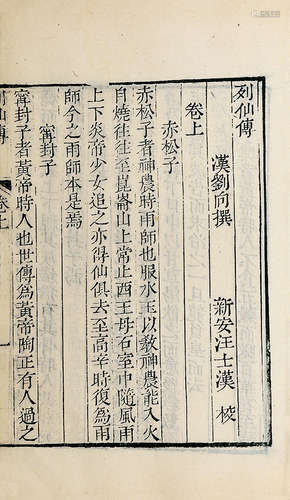 列仙傳
漢劉向撰 新安汪士漢 校
卷上
赤松子
赤松子者神農時雨師也服水玉以敎神農能入火
自燒往往至崑崙山上常止西王母石室中隨風雨
上下炎帝少女追之亦得仙俱去至高辛時復為雨
師今之雨師本是焉
甯封子
甯封子者黃帝時人也世傳為黃帝陶正有人過之
仙傳
卷上